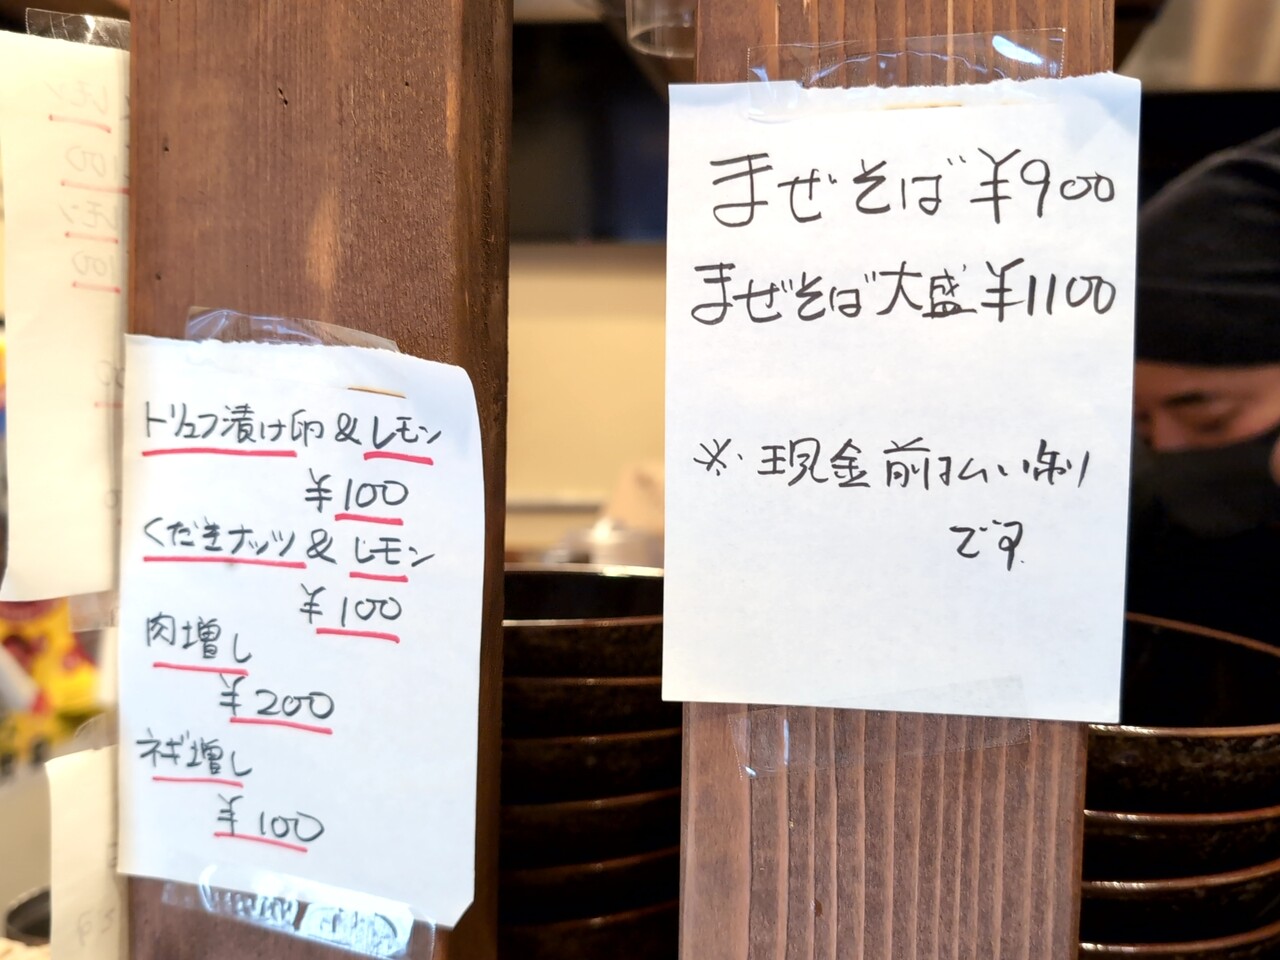 トリュフ漬け卵 & レモン
¥100
くだきナッツ & レモン
¥100
肉増し
¥200
ネギ増し
¥100
まぜそば ¥900
まぜそば大盛 ¥1100
※現金前払い制
です
レモン
100
レモン
100